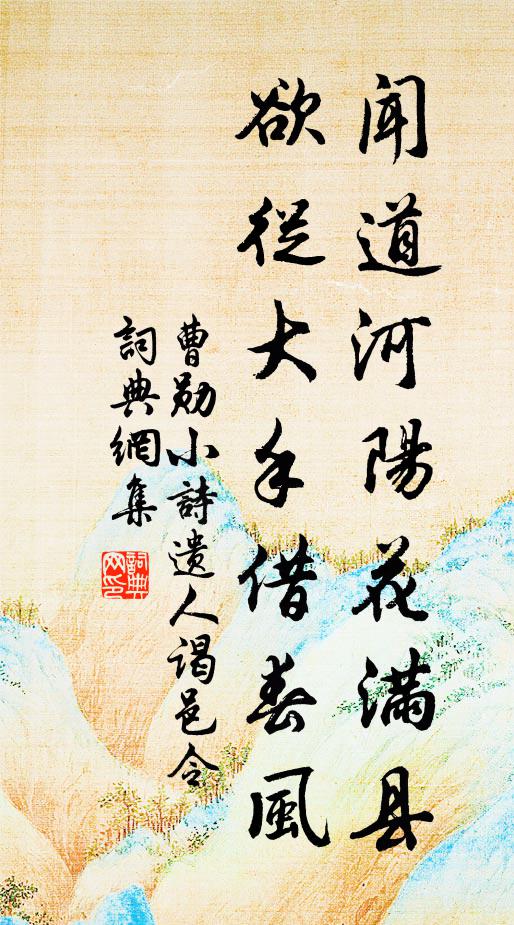 聞道河陽花滿县
欲從大手借春風
曹勋小詩遗人谒邑令
詞典網集
詞典网印